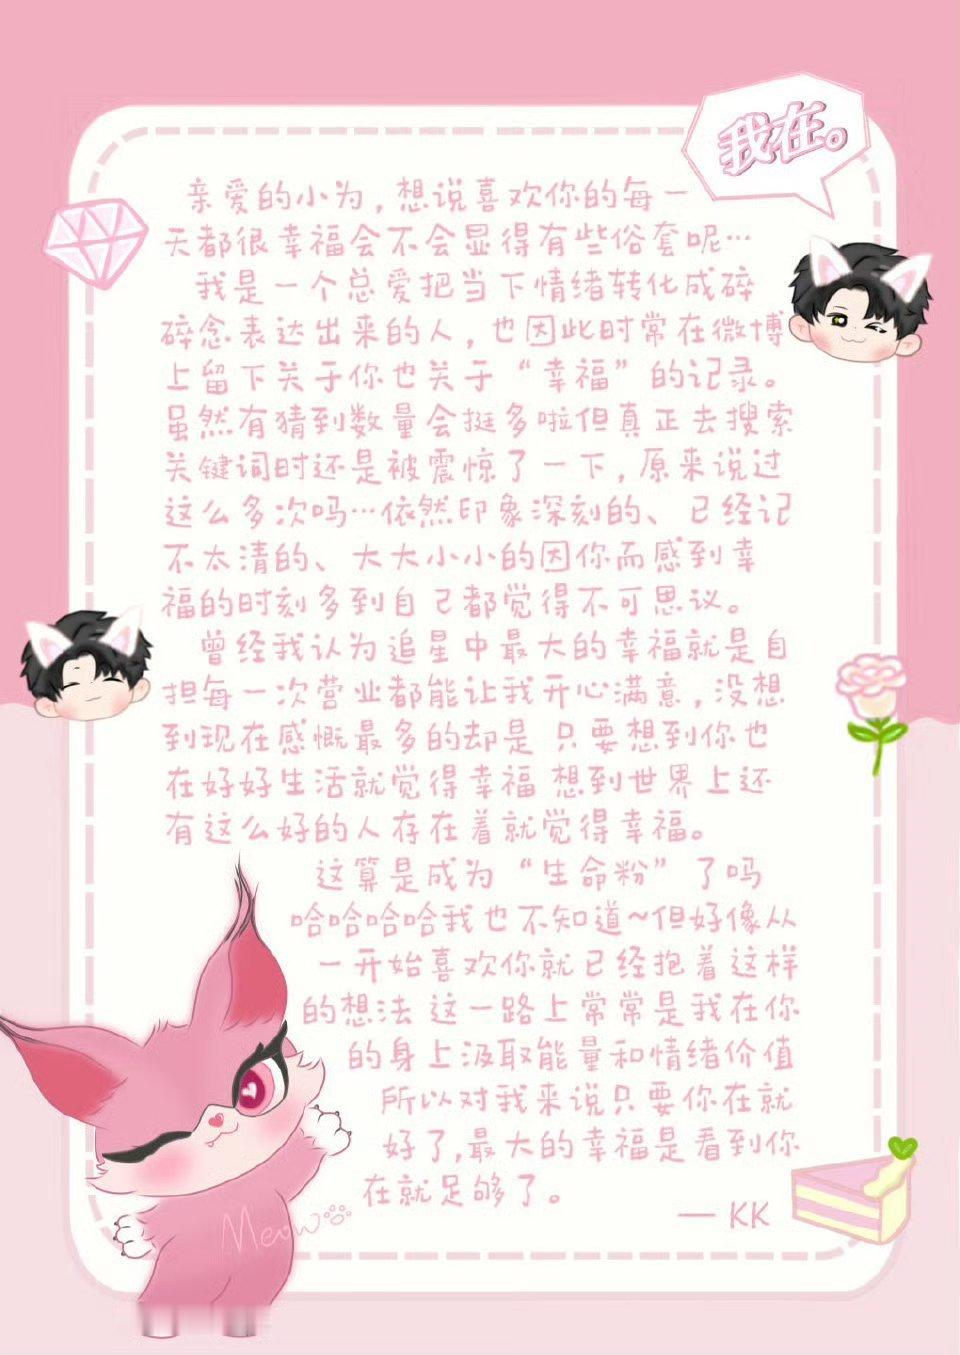 我在。
亲爱的小为，想说喜欢你的每一
天都很幸福会不会显得有些俗套呢…
我是一个总爱把当下情绪转化成碎
碎念表达出来的人，也因此时常在微博
上留下关于你也关于“幸福”的记录。
虽然有猜到数量会挺多啦但真正去搜索
关键词时还是被震惊了一下，原来说过
这么多次吗…依然印象深刻的、已经记
不太清的、大大小小的因你而感到幸
福的时刻多到自己都觉得不可思议。
曾经我认为追星中最大的幸福就是自
担每一次营业都能让我开心满意，没想
到现在感慨最多的却是 只要想到你也
在好好生活就觉得幸福 想到世界上还
有这么好的人存在着就觉得幸福。
这算是成为“生命粉”了吗
哈哈哈哈我也不知道~但好像从
一开始喜欢你就已经抱着这样
的想法 这一路上常常是我在你
的身上汲取能量和情绪价值
所以对我来说只要你在就
好了，最大的幸福是看到你
在就足够了。
— KK
Meow